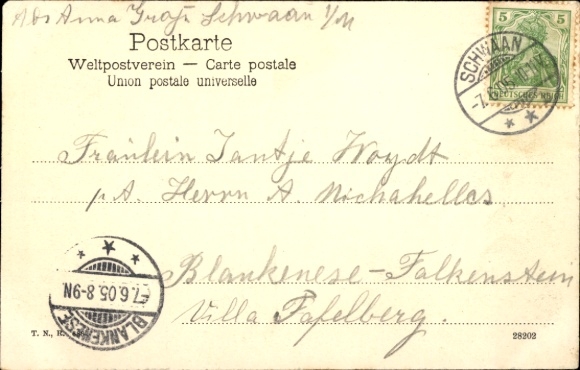 Abs Anna Grafs Schwaan i/M
Postkarte
Weltpostverein — Carte postale
Union postale universelle
5 5
DEUTSCHES REICH
SCHWAAN
Fräulein Tantje Woydt
p. A. Herrn A. Michahelles
Blankenese-Falkenstein
Villa Tafelberg.
BLANKENESE
7.6.05.8-9N
T. N.,
28202